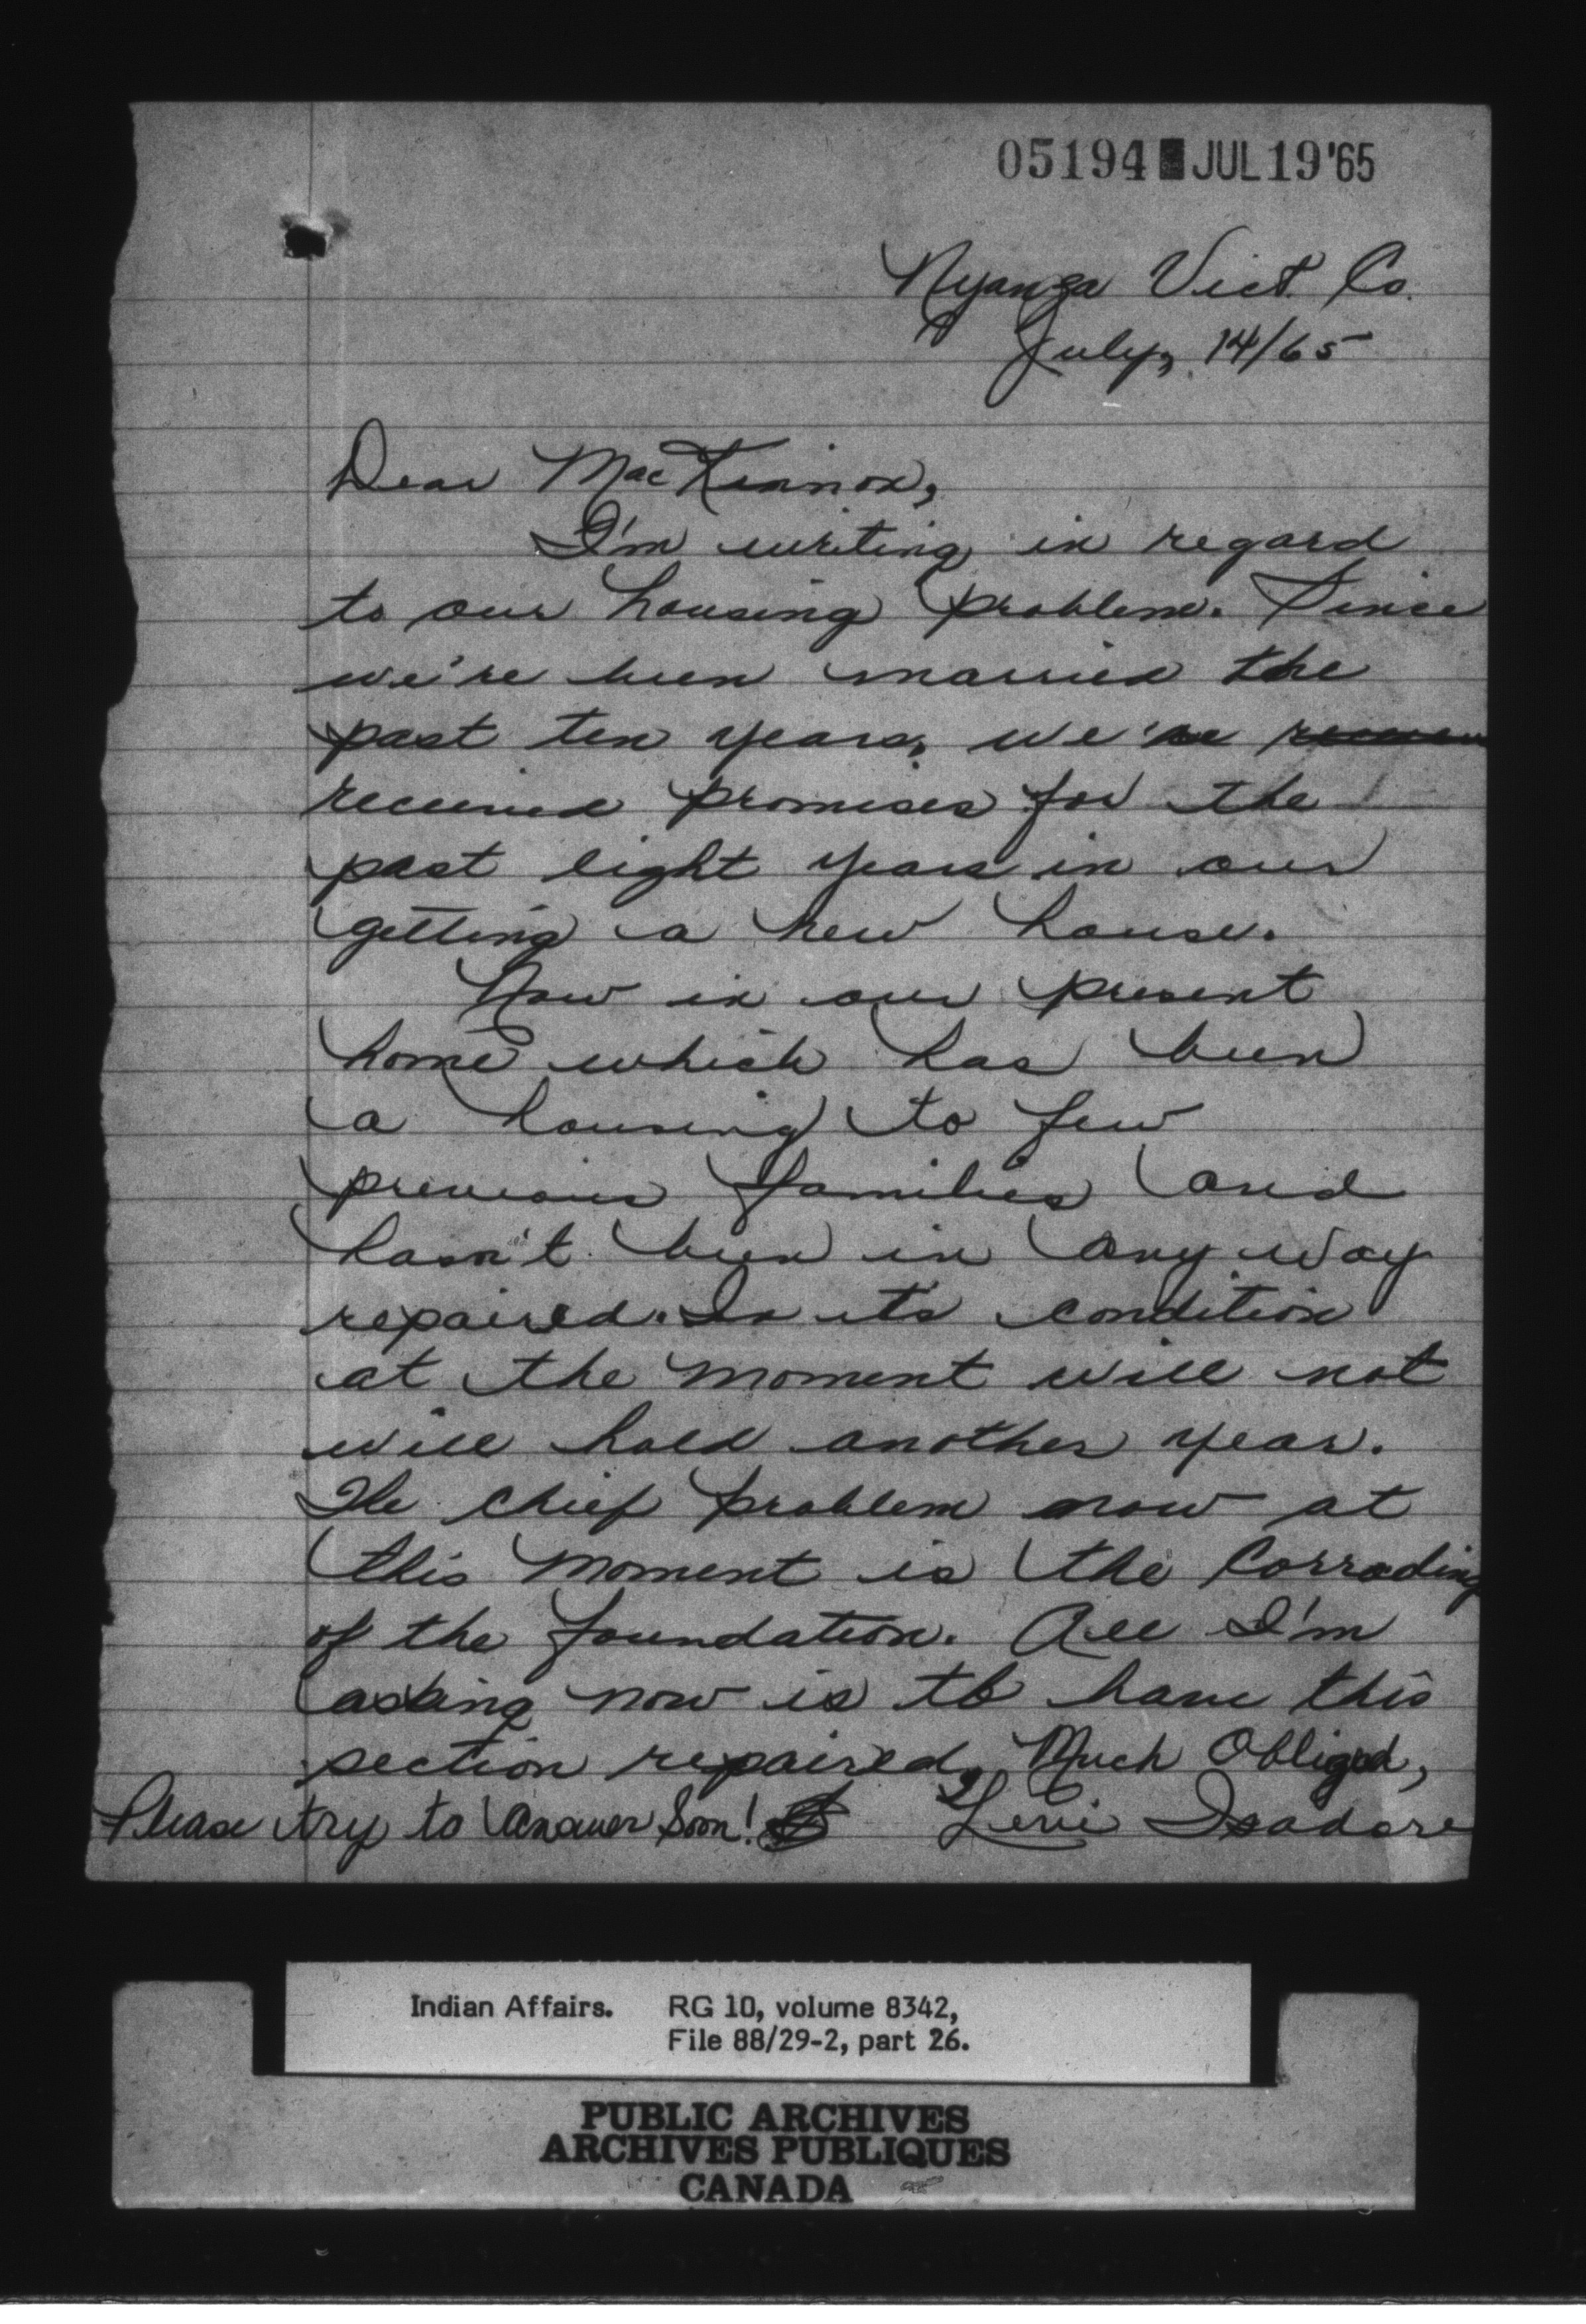 05194 JUL 19 '65
Nyanza Vict. Co.
July, 14/65
Dear MacKinnon,
I'm writing in regard
to our housing problem. Since
we're been married the
past ten years, we've
received promises for the
past eight years in our
getting a new house.
Now in our present
home which has been
a housing to few
previous families and
hasn't been in any way
repaired. In its condition
at the moment will not
will hold another year.
The chief problem now at
this moment is the Corroding
of the foundation. All I'm
asking now is to have this
section repaired. Much Obliged,
Please try to answer Soon! Levi Isadore
Indian Affairs. RG 10, volume 8342,
File 88/29-2, part 26.
PUBLIC ARCHIVES
ARCHIVES PUBLIQUES
CANADA